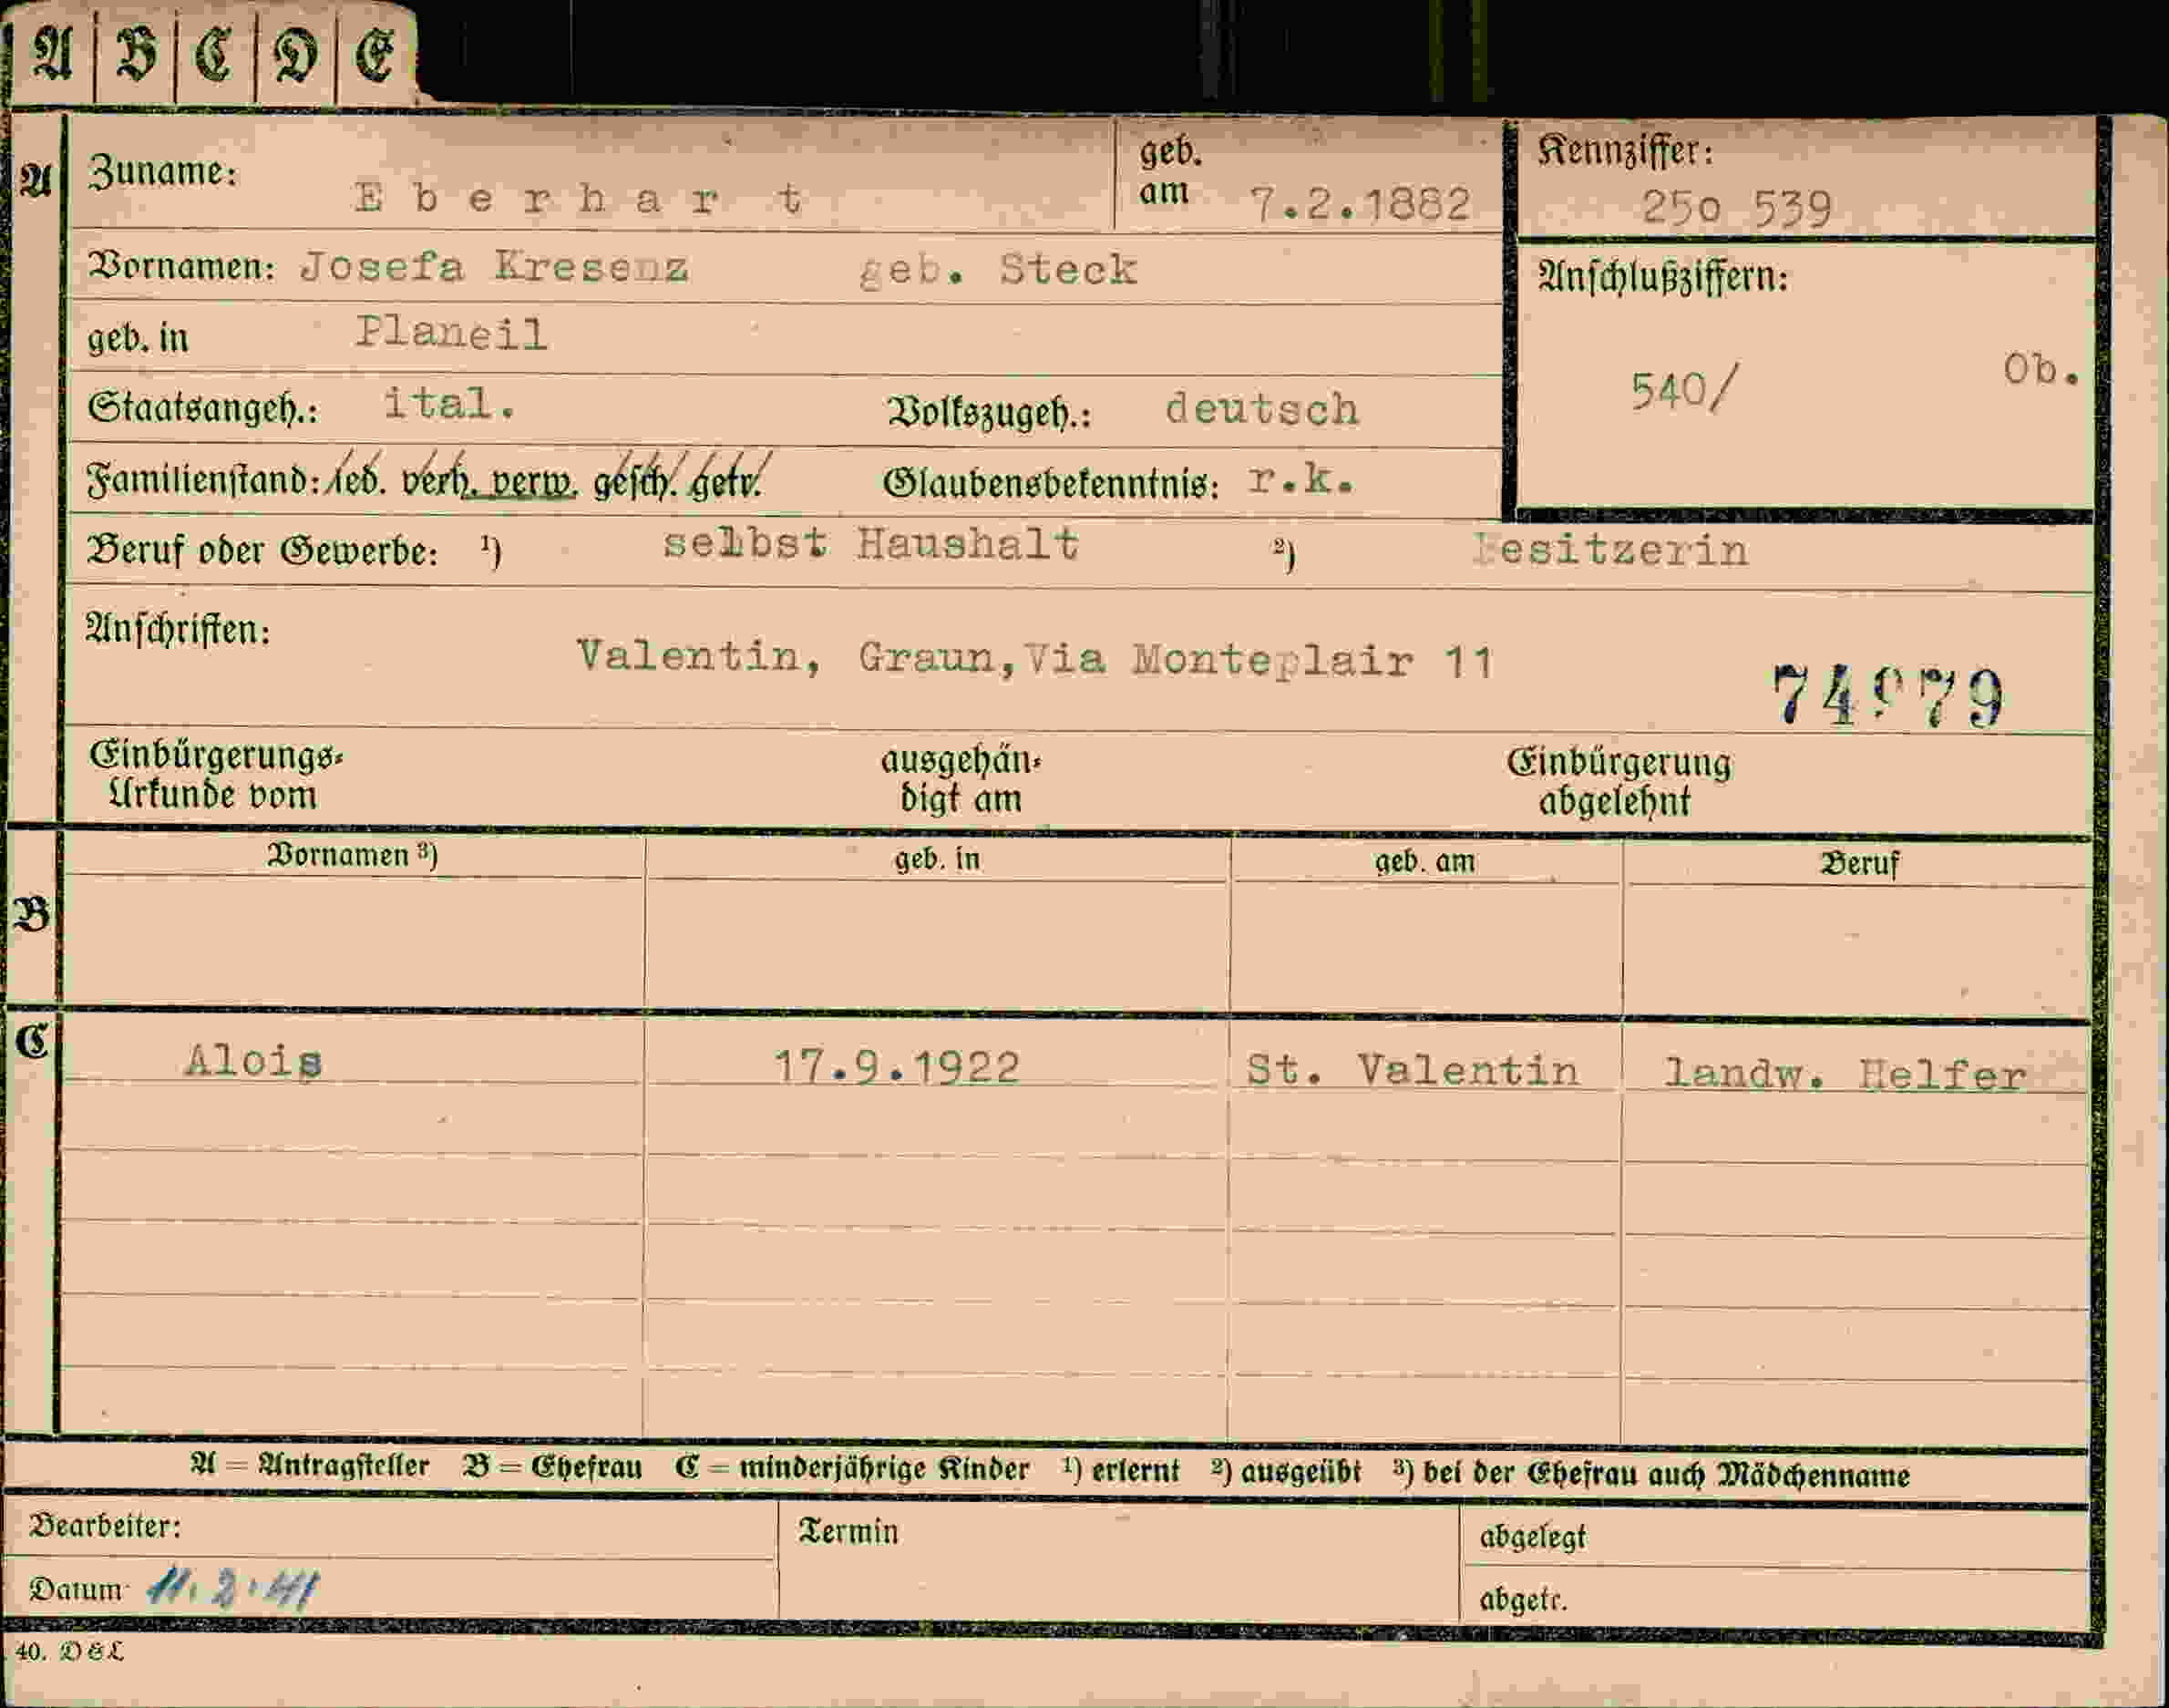 A B C D E
A Zuname: E b e r h a r t geb. am 7.2.1882 Kennziffer: 25o 539
Vornamen: Josefa Kresenz geb. Steck Anschlußziffern:
geb. in Planeil
540/ Ob.
Staatsangeh.: ital. Volkszugeh.: deutsch
Familienstand: led. verh. verw. gesch. getr. Glaubensbekenntnis: r.k.
Beruf oder Gewerbe: 1) selbst Haushalt 2) Besitzerin
Anschriften: Valentin, Graun, Via Monteplair 11
Einbürgerungs-Urkunde vom ausgehändigt am Einbürgerung abgelehnt
Vornamen 3) geb. in geb. am Beruf
B
C Alois 17.9.1922 St. Valentin landw. Helfer
A = Antragsteller B = Ehefrau C = minderjährige Kinder 1) erlernt 2) ausgeübt 3) bei der Ehefrau auch Mädchenname
Bearbeiter: Termin abgelegt
Datum 11.2.41 abgetr.
40. D&L